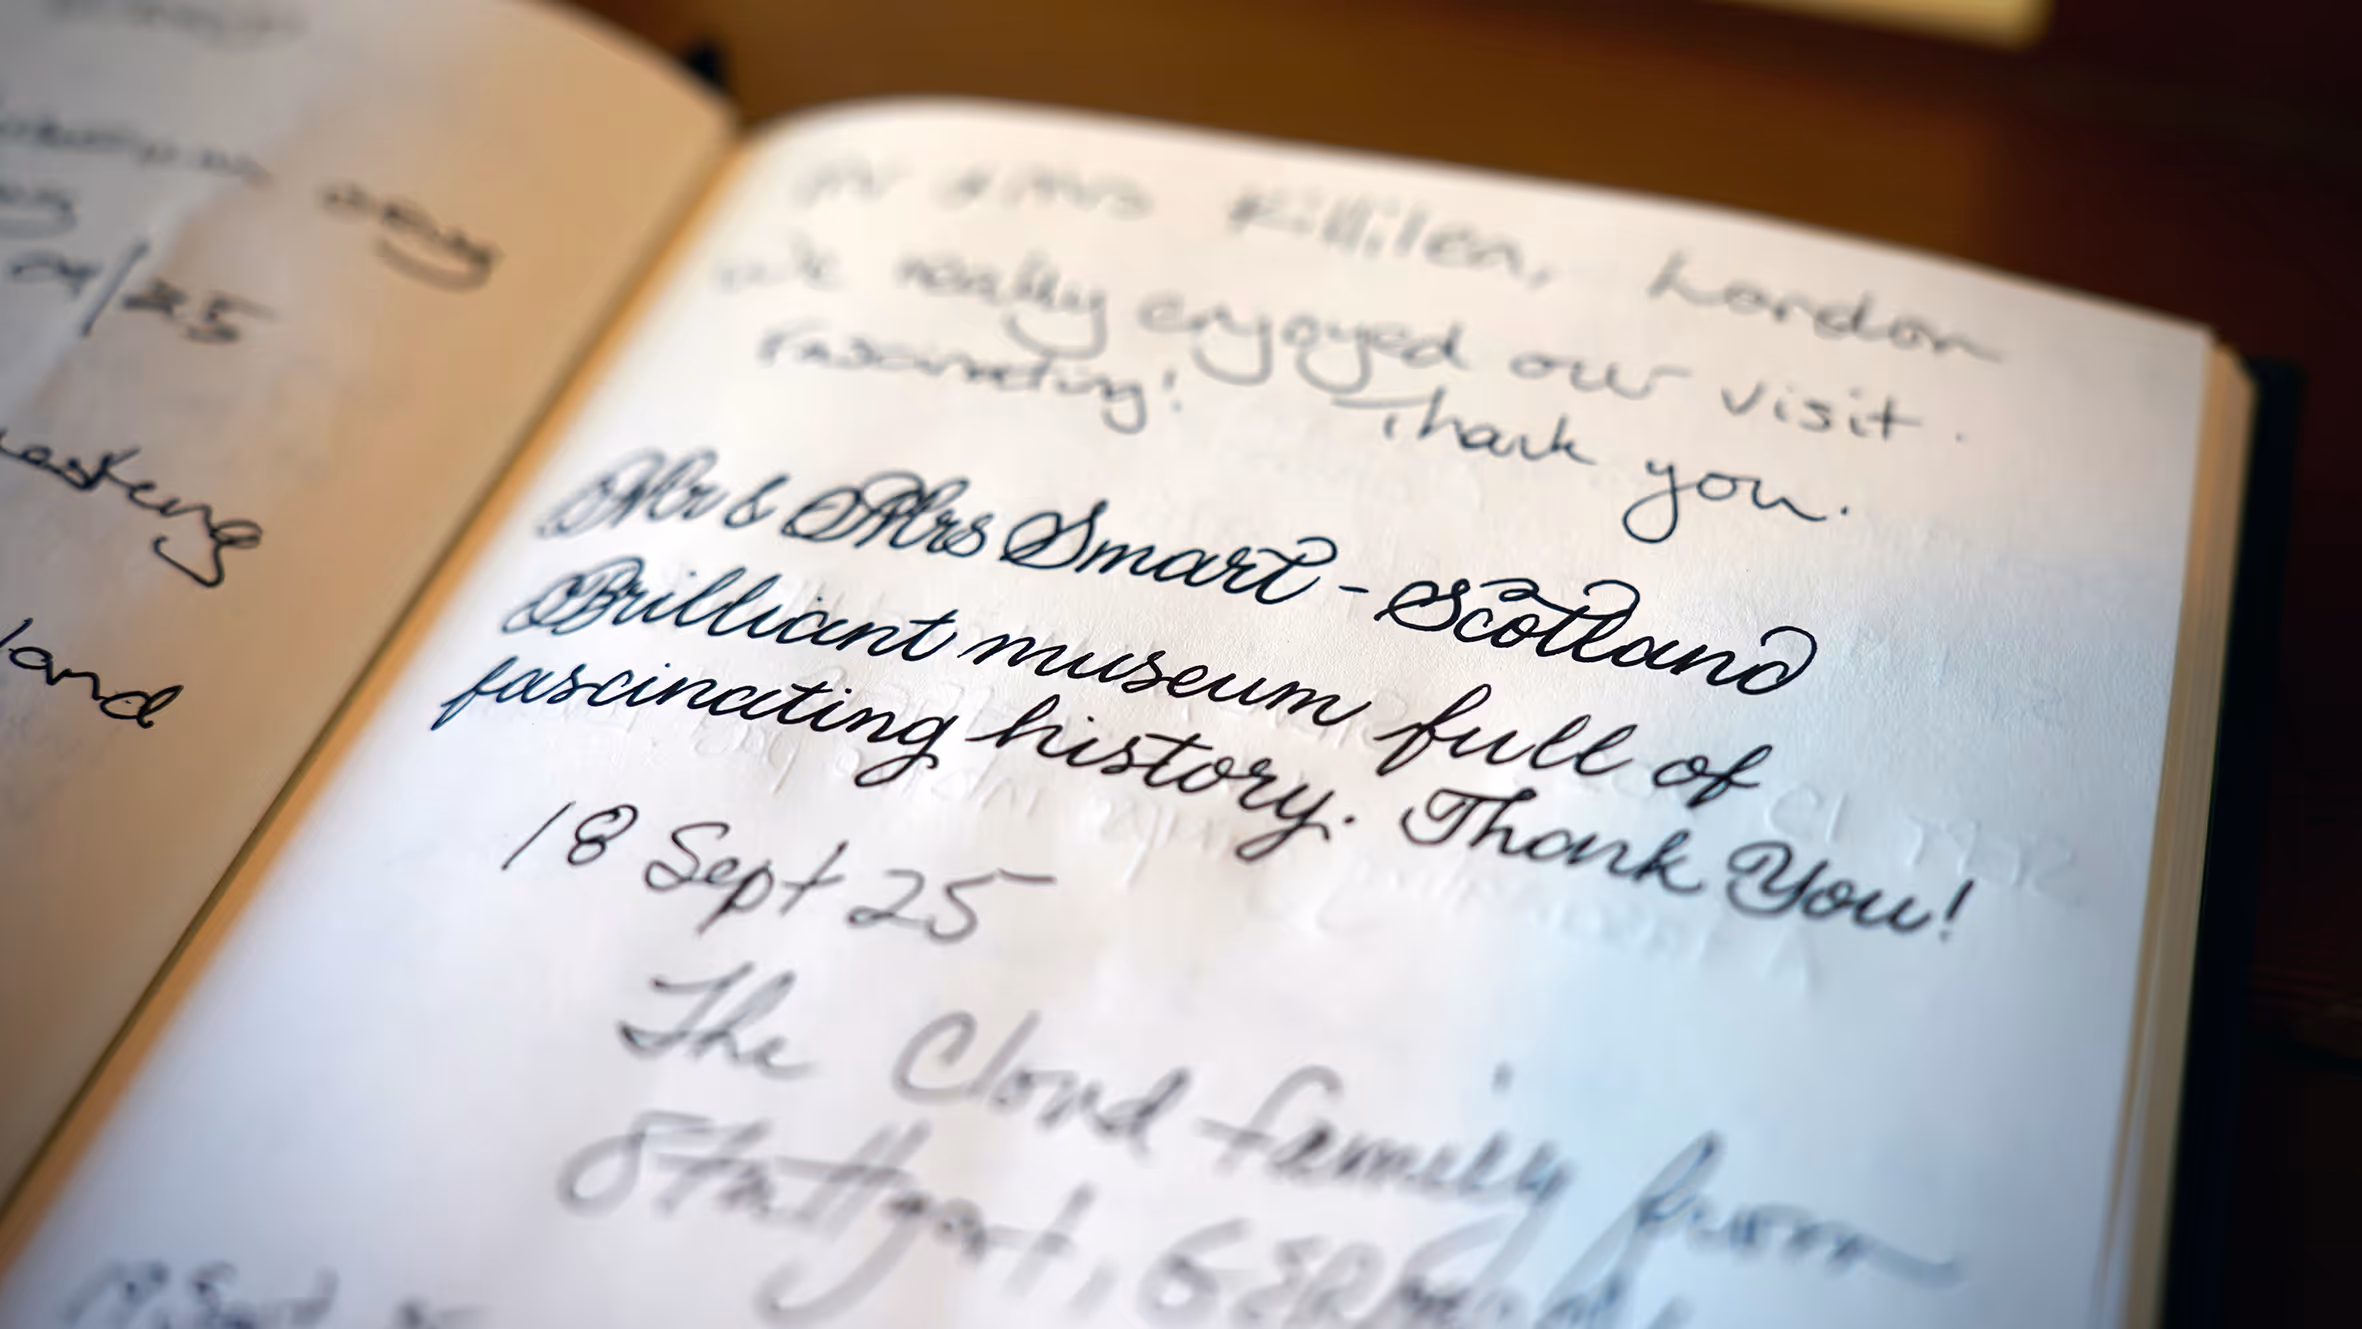 any
/25
land
Mr & Mrs Killilea, London
We really enjoyed our visit.
Fascinating! Thank you.
Mr & Mrs Smart - Scotland
Brilliant museum full of
fascinating history. Thank You!
18 Sept 25
The Cloud family from
Stuttgart, GERMANY